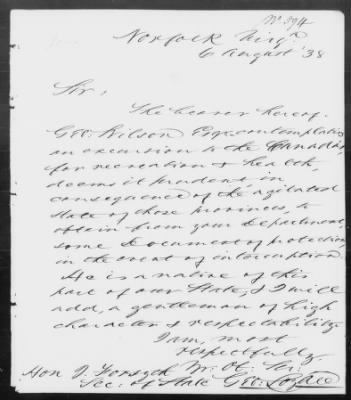 No 394
Norfolk Virga
6 August '38
Sir,
The bearer hereof
Geo: Wilson Esqr contemplating
an excursion to the Canadas
for recreation & health,
deems it prudent in
consequence of the agitated
state of those provinces, to
obtain from your Department,
some Document of protection
in the event of interruption.
He is a native of this
part of our State, & I will
add, a gentleman of high
character & respectability.
I am, most
respectfully
Yr. Ob. Sr.
Hon J. Forsyth
Sec: of State Geo: